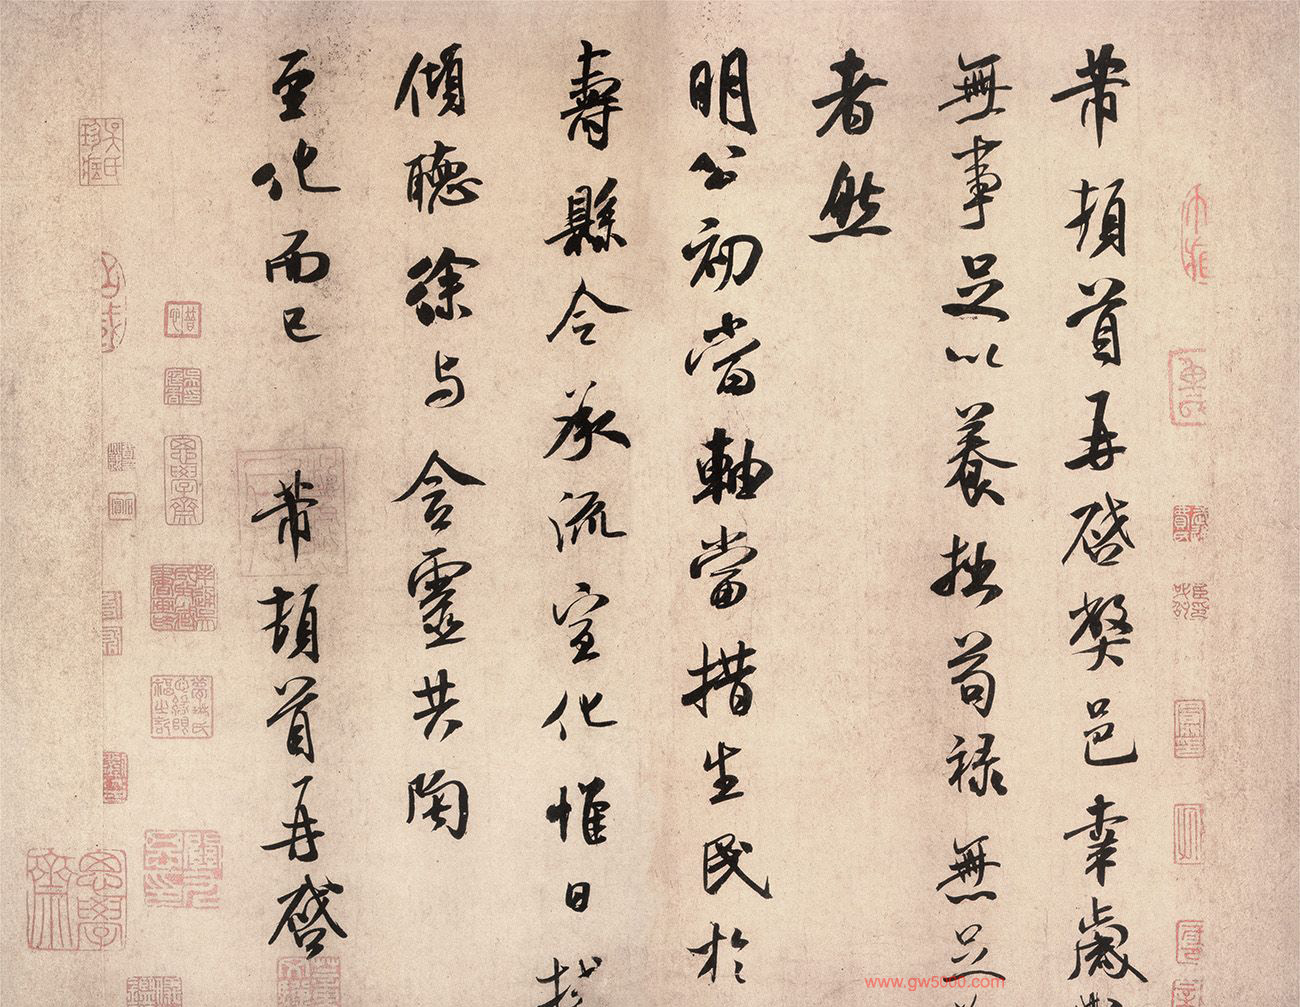 芾頓首再啓弊邑幸處
無事足以養拙苟祿無足
者然
明公初當軸當措生民於
壽縣令承流宣化惟日
傾聽徐与含靈共陶
至化而已 芾頓首再啓
www.gw5000.com